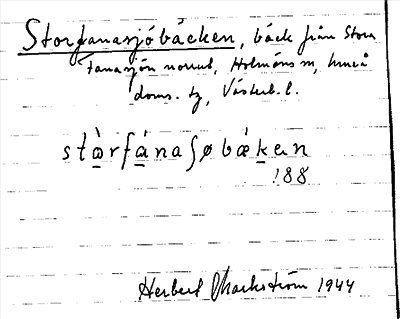 Storfanasjöbäcken, bäck från Stora
Fanasjön norrut, Holmöns sn, Umeå
doms. tg, Västerb. l.
stàrfánaʃøbǽkɐn
188
Herbert Markström 1944